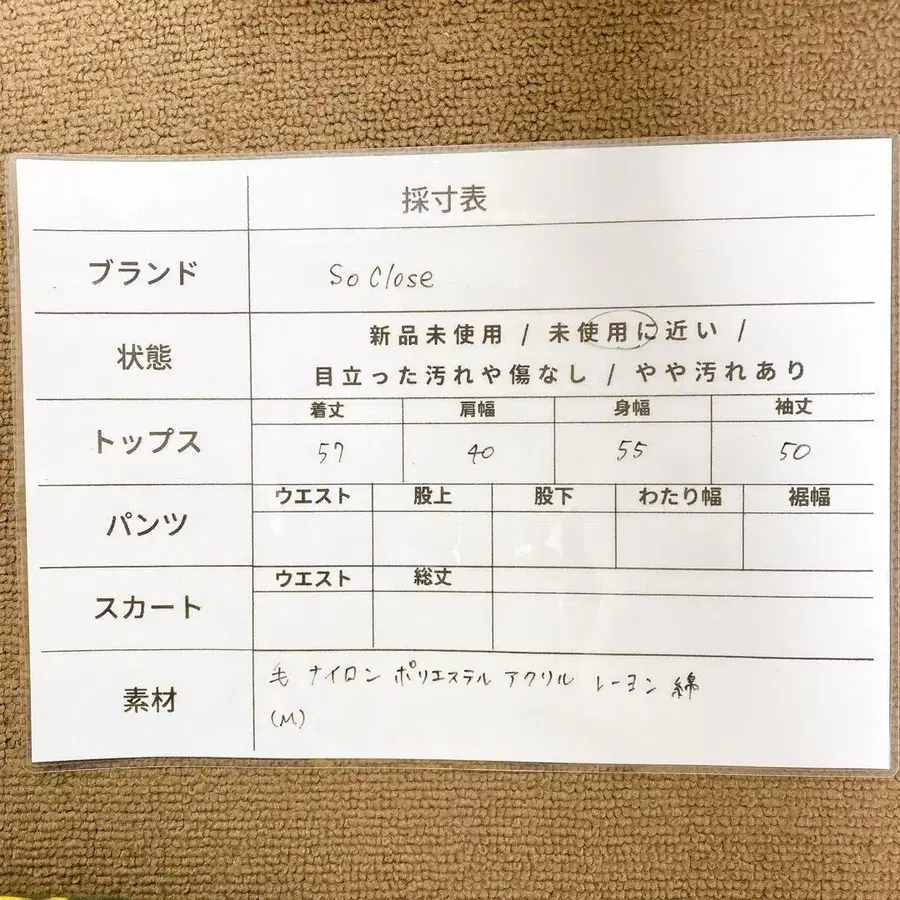 採寸表
ブランド So Close
状態 新品未使用 / 未使用に近い /
目立った汚れや傷なし / やや汚れあり
トップス 着丈 肩幅 身幅 袖丈
57 40 55 50
パンツ ウエスト 股上 股下 わたり幅 裾幅
スカート ウエスト 総丈
素材 毛 ナイロン ポリエステル アクリル レーヨン 綿
(M)